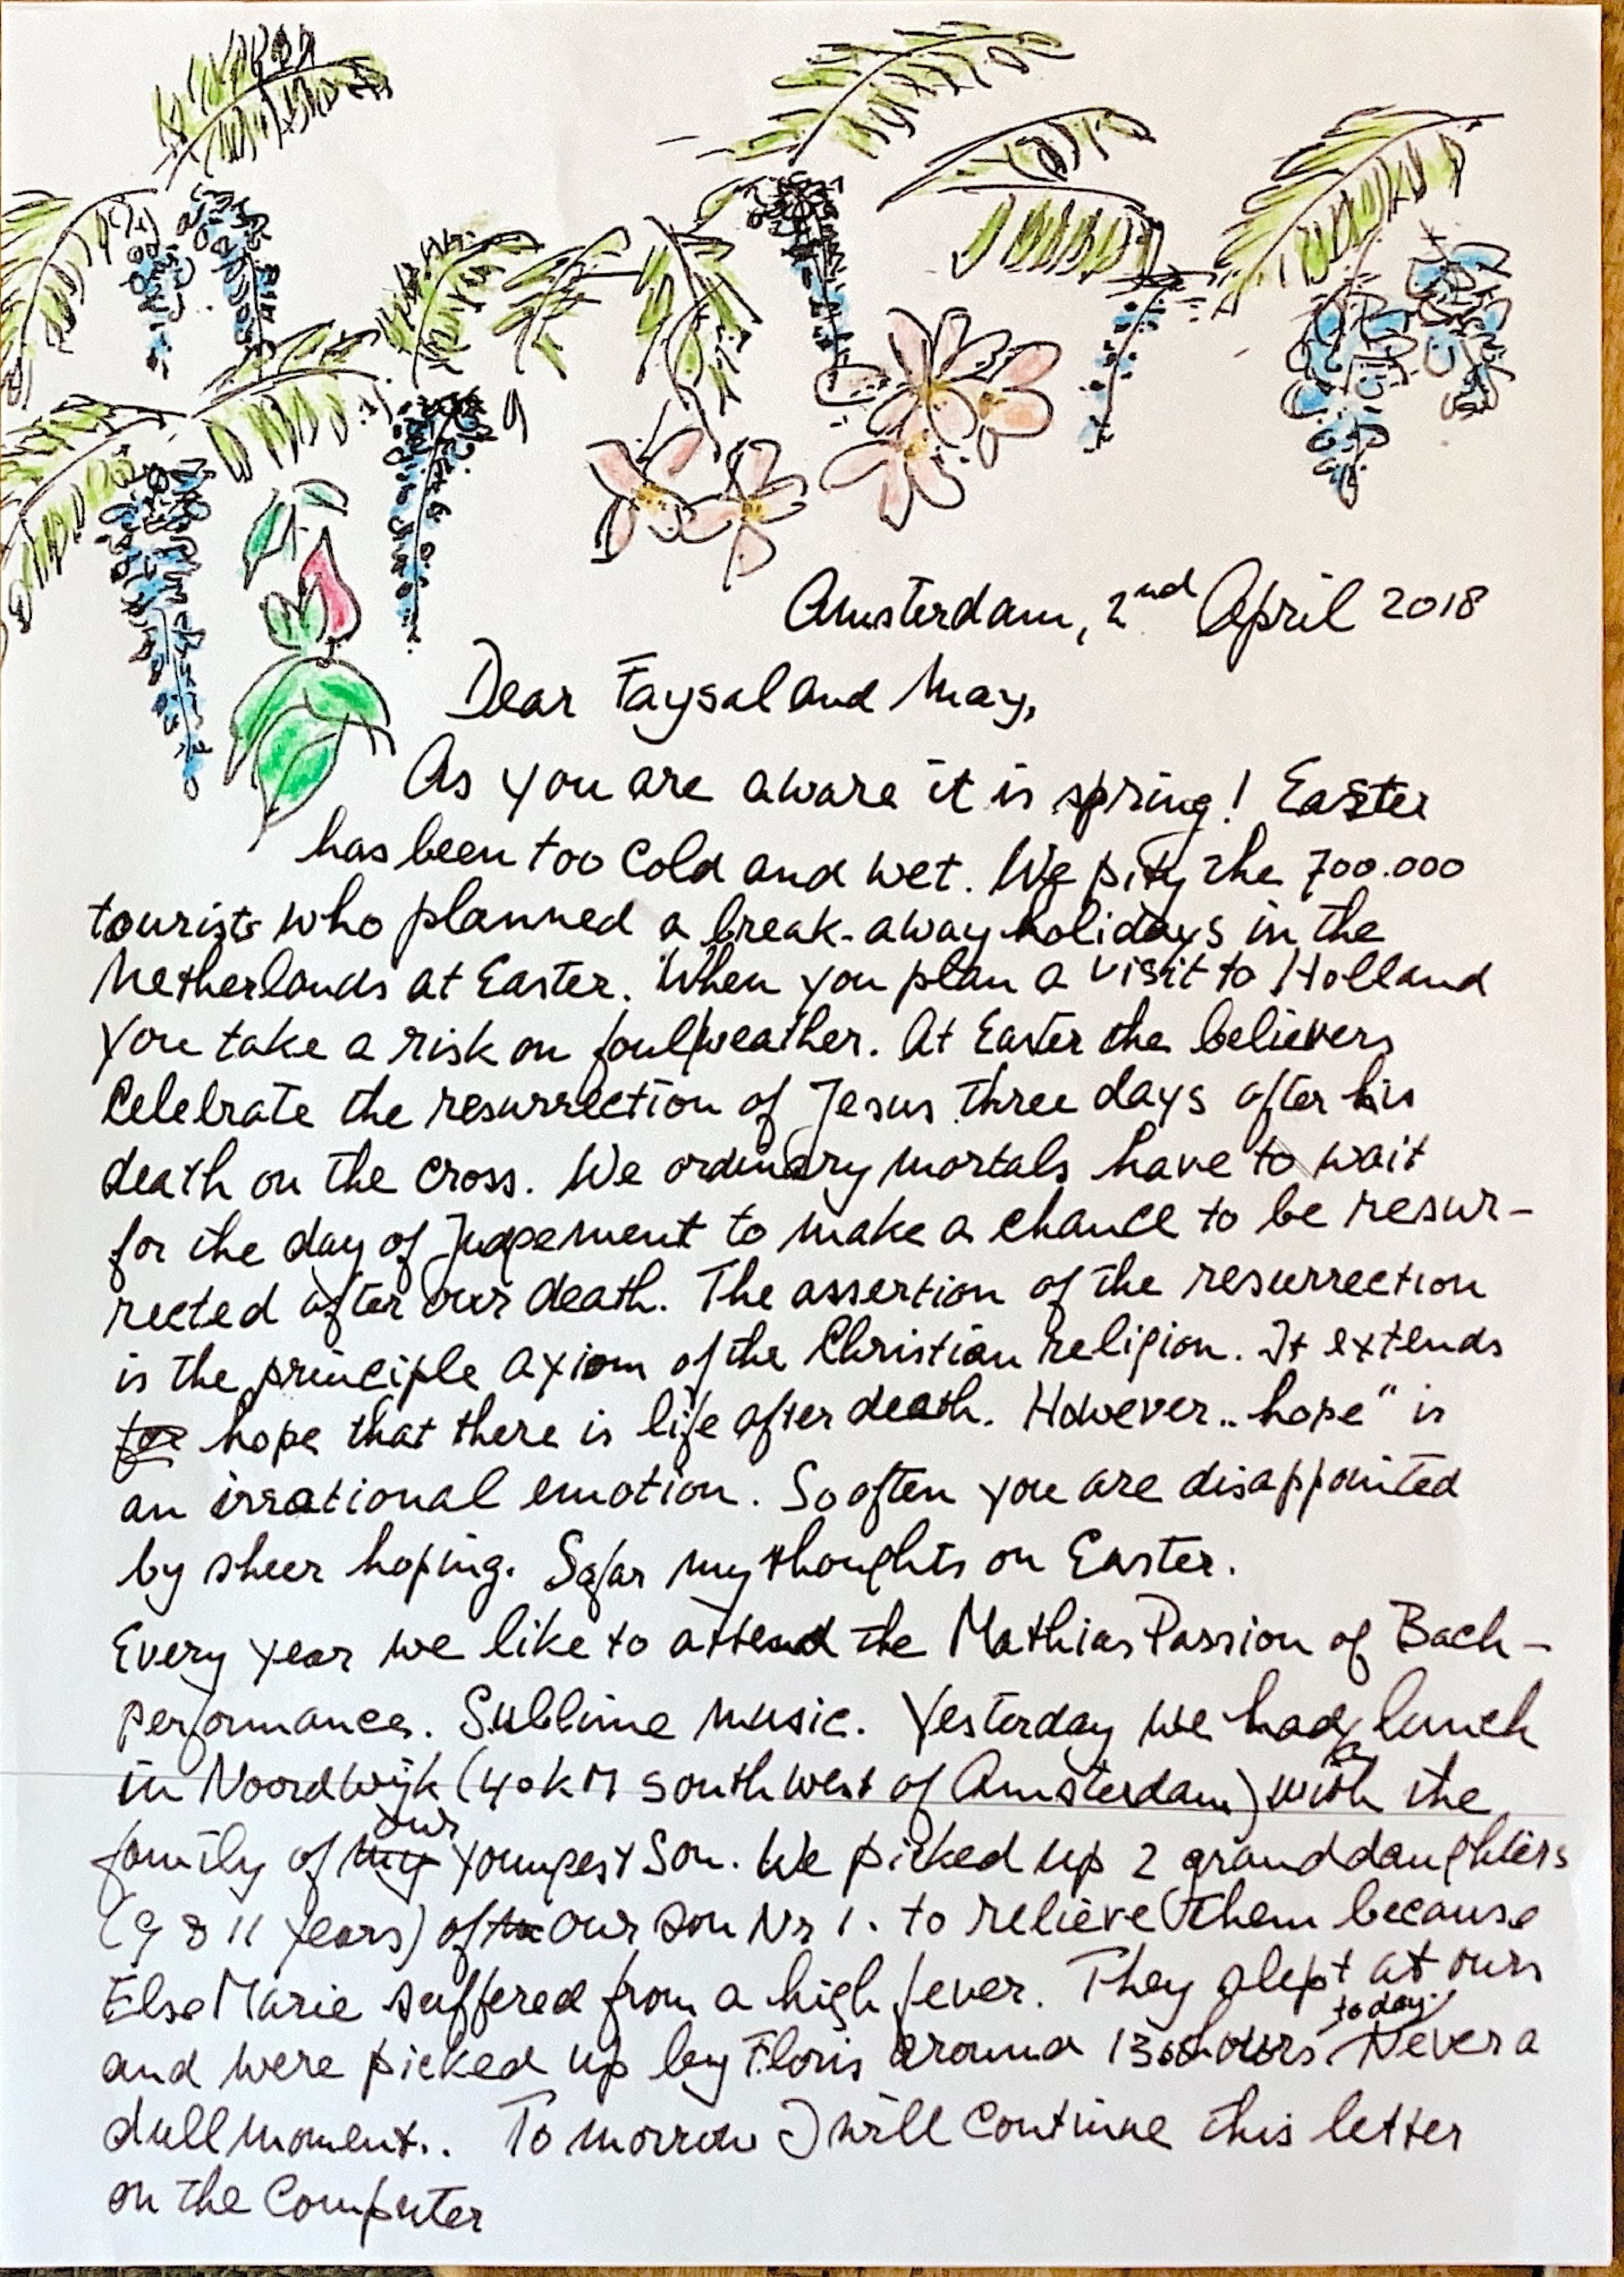 Amsterdam, 2nd April 2018
Dear Faysal and May,
As you are aware it is spring! Easter
has been too cold and wet. We pity the 700.000
tourists who planned a break-away holidays in the
Netherlands at Easter. When you plan a visit to Holland
you take a risk on foul weather. At Easter the believers
celebrate the resurrection of Jesus three days after his
death on the cross. We ordinary mortals have to wait
for the day of Judgement to make a chance to be resur-
rected after our death. The assertion of the resurrection
is the principle axiom of the Christian religion. It extends
hope that there is life after death. However „hope" is
an irrational emotion. So often you are disappointed
by sheer hoping. Sofar my thoughts on Easter.
Every year we like to attend the Mathias Passion of Bach-
performance. Sublime music. Yesterday we had a lunch
in Noordwijk (40 KM south west of Amsterdam) with the
family of our youngest son. We picked up 2 granddaughters
(9 & 11 years) of our son Nr 1. to relieve them because
Else Marie suffered from a high fever. They slept at ours
and were picked up by Floris around 1300 hours today. Never a
dull moment.. Tomorrow I will continue this letter
on the computer